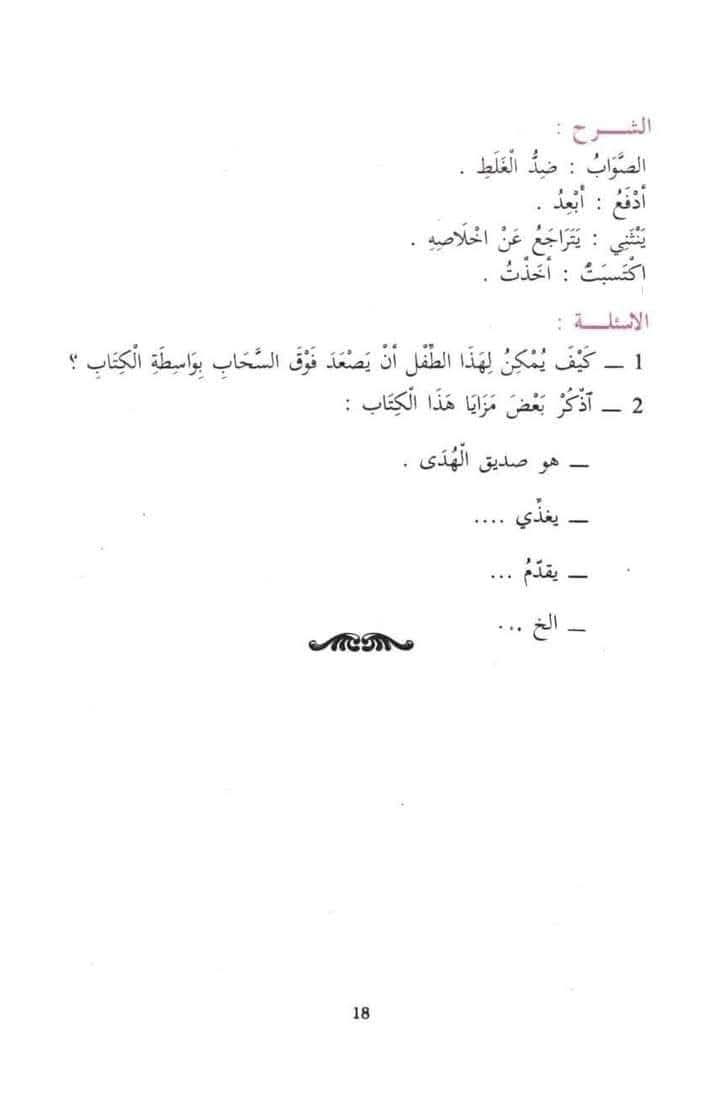 الشـــرح :
الصَّوَابُ : ضِدُّ الْغَلَطِ .
أدْفَعُ : أبْعِدُ .
يَنْثَنِي : يَتَرَاجَعُ عَنْ اخْلَاصِهِ .
اكْتَسبَتْ : أخَذْتُ .
الاسئلـــة :
1 ــ كَيْفَ يُمْكِنُ لِهَذَا الطِّفْل أنْ يَصْعَدَ فَوْقَ السَّحَاب بِوَاسِطَةِ الْكِتَابِ ؟
2 ــ آذْكُرْ بَعْضَ مَزَايَا هَذَا الْكِتَاب :
ــ هو صديق الْهُدَى .
ــ يغذِّي ....
ــ يقدّمُ ...
ــ الخ ...
18